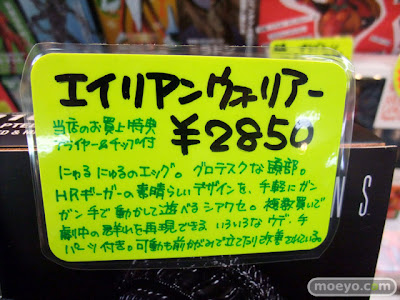 エイリアンウォリアー
当店のお買上特典
プライヤー&チップ付
¥2850
にゅるにゅるのエッグ。グロテスクな頭部。
HRギーガーの素晴らしいデザインを、手軽にガン
ガン手で動かして遊べるシアワセ。複数買いで
劇中の群体を再現できま いろいろなウデ・手
パーツ付き。可動も前かがみで立てなり改善されている。
N S
moeyo.com